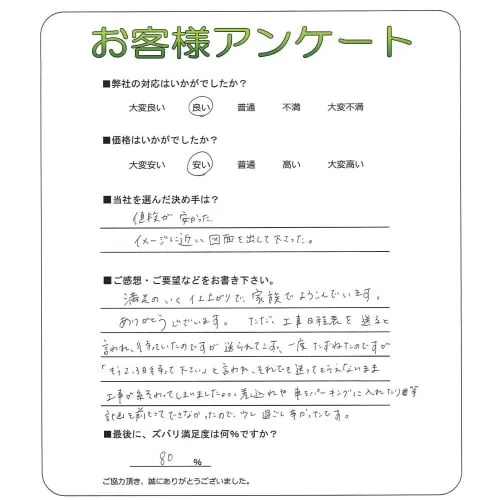 お客様アンケート
■弊社の対応はいかがでしたか？
大変良い 良い 普通 不満 大変不満
■価格はいかがでしたか？
大変安い 安い 普通 高い 大変高い
■当社を選んだ決め手は？
値段が安かった
イメージに近い図面を出して下さった。
■ご感想・ご要望などをお書き下さい。
満足のいく仕上がりで、家族でよろこんでいます。
ありがとうございます。 ただ、工事日程表を送ると
言われ、待っていたのですが送られてこず、一度たずねたのですが
「もう2、3日待って下さい」と言われ、それでも送ってもらえないまま
工事が終わってしまいました。。。差込れや車をパーキングに入れたり等
計画を前もってできなかったので、少し過ごし辛かったです。
■最後に、ズバリ満足度は何％ですか？
80 %
ご協力頂き、誠にありがとうございました。